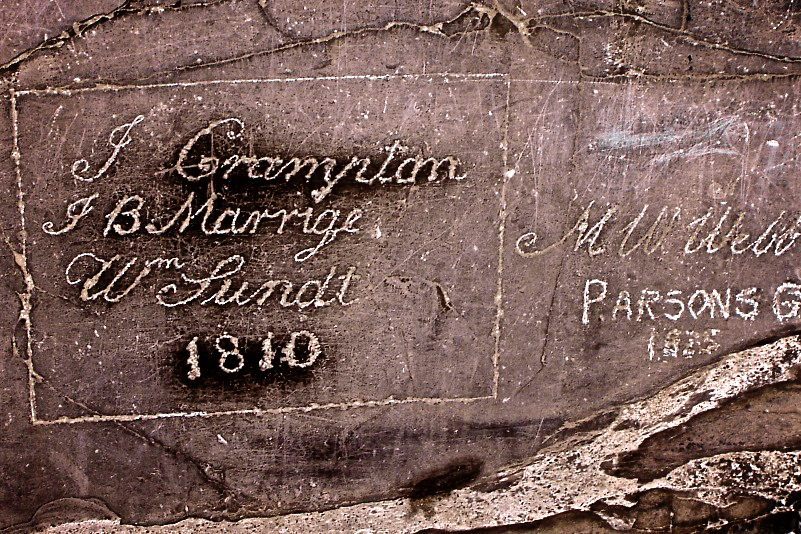 J Crampton
J B Marrige
Wm Sundt
1810
M W Webb
PARSONS G
1825